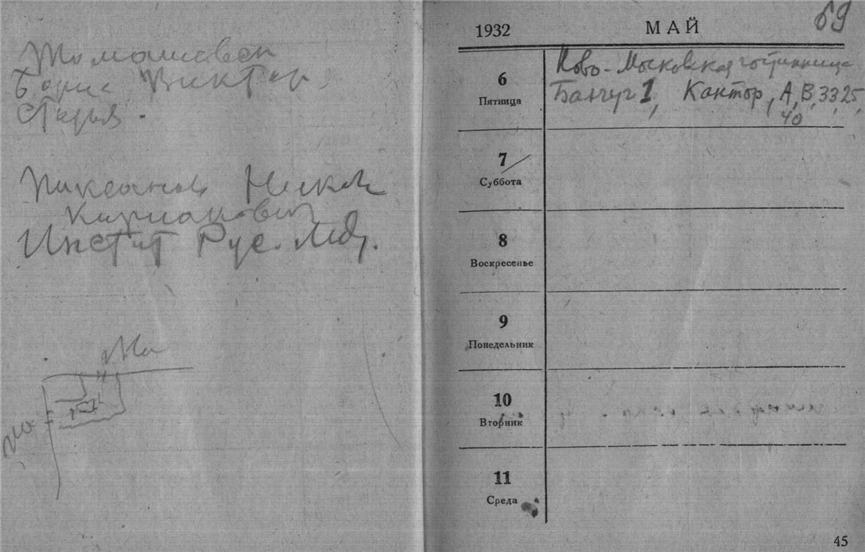 Томашевск
Борис Виктор
Пиксанов Никол
Кирианович
Инстит Рус. Лит.
69
1932 МАЙ
6 Ново-Московская гостинница
Пятница Балчуг 1, Кантор, А, В, 33 25,
40
7
Суббота
8
Воскресенье
9
Понедельник
10
Вторник
11
Среда
45